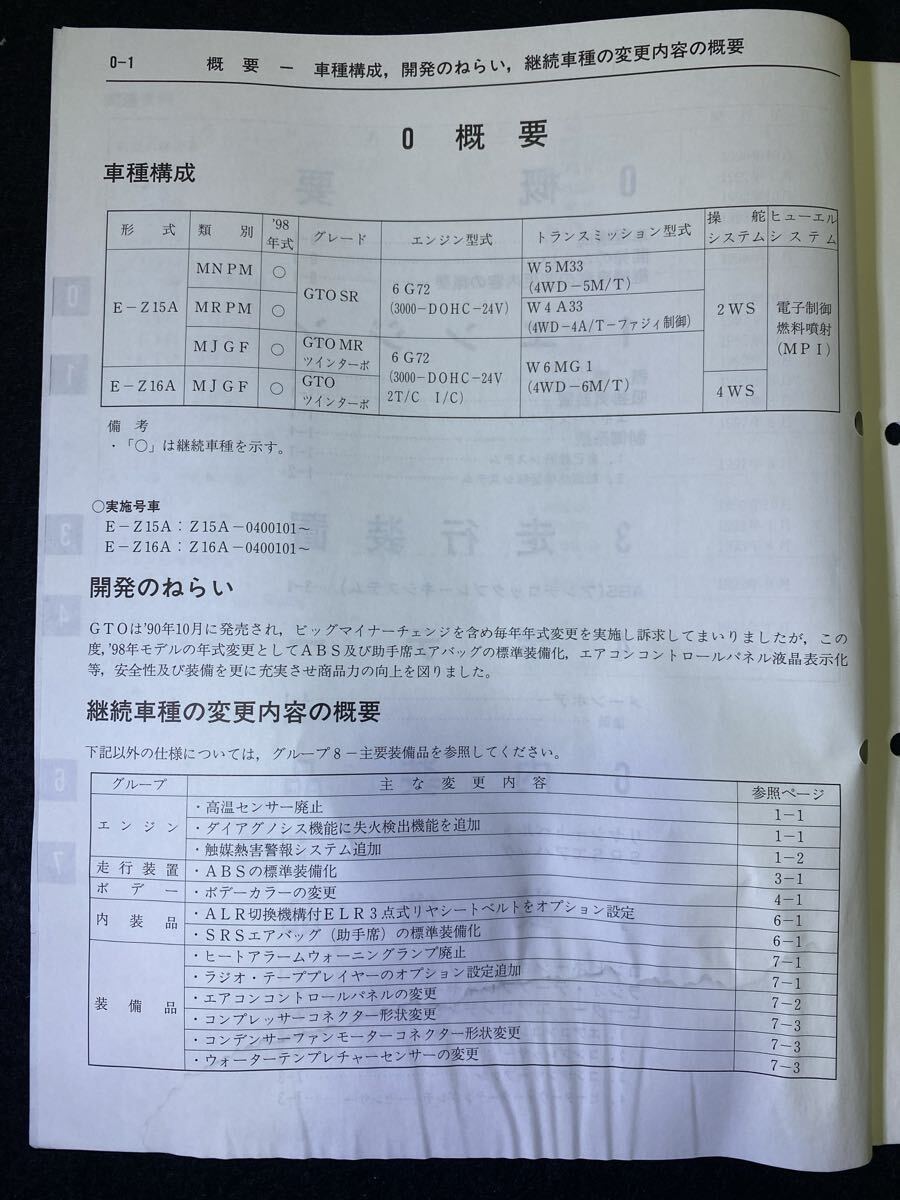 0-1 概要 ー 車種構成，開発のねらい，継続車種の変更内容の概要
0 概要
車種構成
形式 類別 '98年式 グレード エンジン型式 トランスミッション型式 操舵システム ヒューエルシステム
E－Z15A MNPM ○ GTO SR 6G72 (3000－DOHC－24V) W5M33 (4WD－5M/T) 2WS 電子制御燃料噴射(MPI)
MRPM ○ W4A33 (4WD－4A/T－ファジィ制御)
MJGF ○ GTO MR ツインターボ 6G72 (3000－DOHC－24V 2T/C I/C) W6MG1 (4WD－6M/T)
E－Z16A MJGF ○ GTO ツインターボ 4WS
備考
・「○」は継続車種を示す。
○実施号車
E－Z15A：Z15A－0400101～
E－Z16A：Z16A－0400101～
開発のねらい
GTOは'90年10月に発売され，ビッグマイナーチェンジを含め毎年年式変更を実施し訴求してまいりましたが，この
度，'98年モデルの年式変更としてABS及び助手席エアバッグの標準装備化，エアコンコントロールパネル液晶表示化
等，安全性及び装備を更に充実させ商品力の向上を図りました。
継続車種の変更内容の概要
下記以外の仕様については，グループ8－主要装備品を参照してください。
グループ 主な変更内容 参照ページ
エンジン ・高温センサー廃止 1－1
・ダイアグノシス機能に失火検出機能を追加 1－1
・触媒熱害警報システム追加 1－2
走行装置 ・ABSの標準装備化 3－1
ボデー ・ボデーカラーの変更 4－1
内装品 ・ALR切換機構付ELR3点式リヤシートベルトをオプション設定 6－1
・SRSエアバッグ（助手席）の標準装備化 6－1
装備品 ・ヒートアラームウォーニングランプ廃止 7－1
・ラジオ・テーププレイヤーのオプション設定追加 7－1
・エアコンコントロールパネルの変更 7－2
・コンプレッサーコネクター形状変更 7－3
・コンデンサーファンモーターコネクター形状変更 7－3
・ウォーターテンプレチャーセンサーの変更 7－3